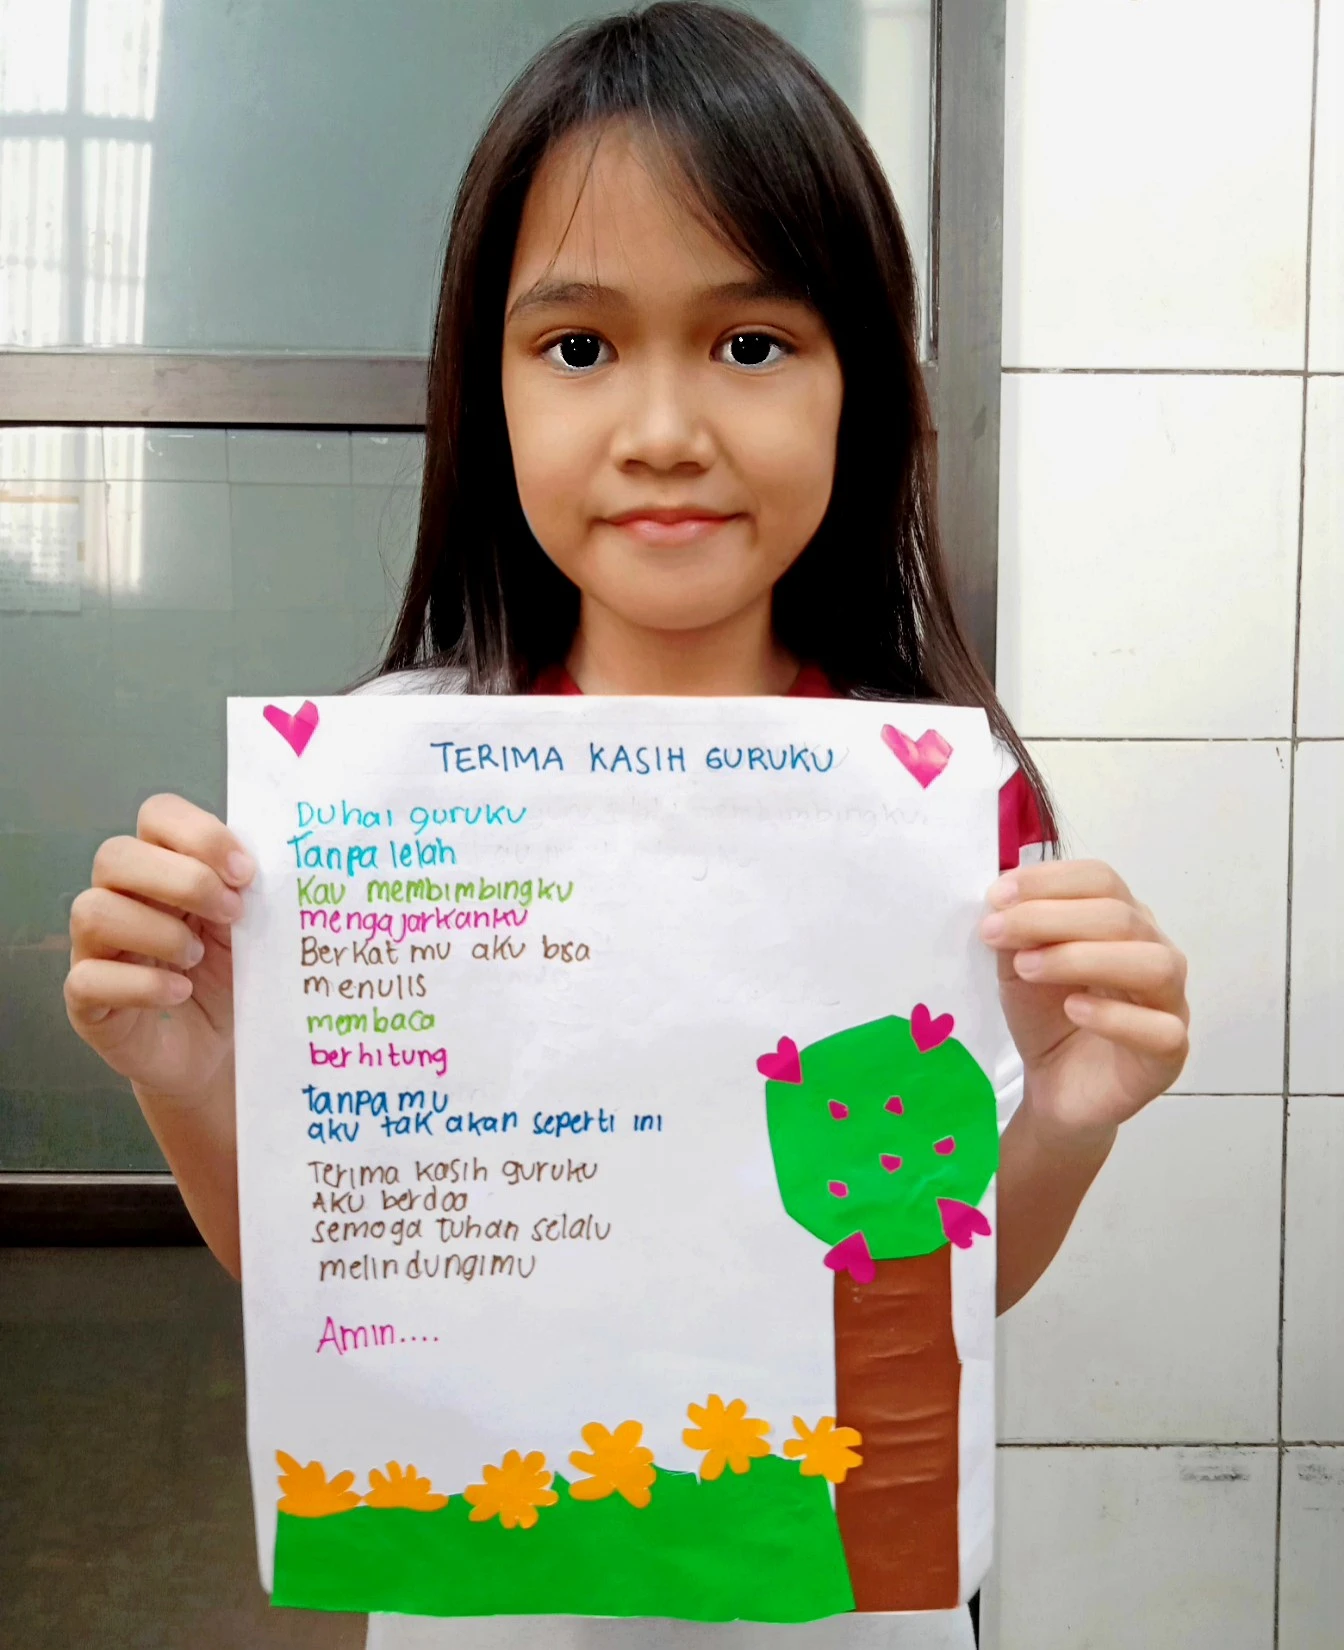 TERIMA KASIH GURUKU
Duhai guruku
Tanpa lelah
Kau membimbingku
mengajarkanku
Berkat mu aku bisa
menulis
membaca
berhitung
tanpa mu
aku tak akan seperti ini
Terima kasih guruku
AKU berdoa
semoga tuhan selalu
melindungimu
Amin....